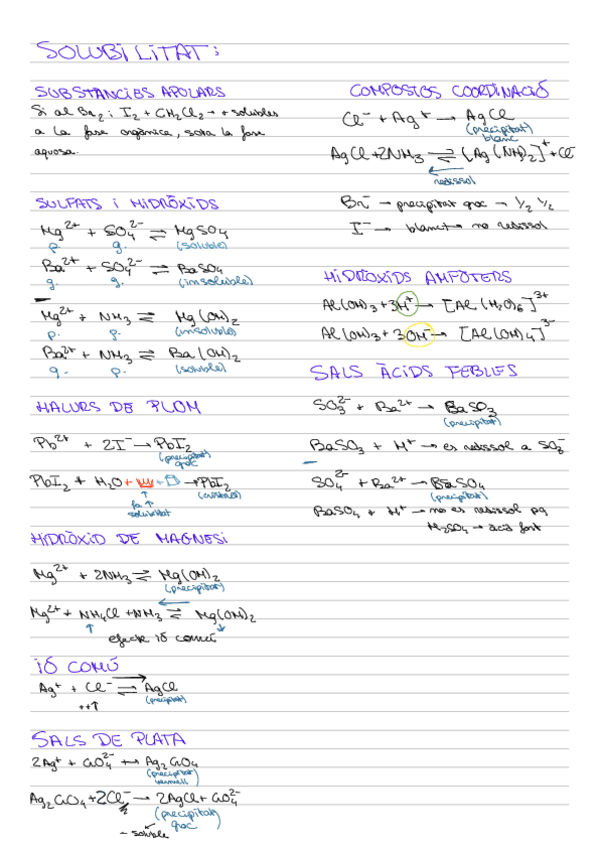 SOLUBILITAT:
SUBSTÀNCIES APOLARS
Si al Br₂ i I₂ + CH₂Cl₂ → + solubles
a la fase orgànica, sota la fase
aquosa.
SULFATS i HIDRÒXIDS
Mg²⁺ + SO₄²⁻ ⇌ MgSO₄
p. g. (soluble)
Ba²⁺ + SO₄²⁻ ⇌ BaSO₄
g. g. (insoluble)
Mg²⁺ + NH₃ ⇌ Mg(OH)₂
p. p. (insoluble)
Ba²⁺ + NH₃ ⇌ Ba(OH)₂
g. p. (soluble)
HALURS DE PLOM
Pb²⁺ + 2I⁻ → PbI₂
(precipitat)
groc
PbI₂ + H₂O + + → PbI₂
fa ↑ (cristalls)
solubilitat
HIDRÒXID DE MAGNESI
Mg²⁺ + 2NH₃ ⇌ Mg(OH)₂
(precipitat)
←
Mg²⁺ + NH₄Cl + NH₃ ⇌ Mg(OH)₂
↑ ↓
efecte ió comú
IÓ COMÚ
Ag⁺ + Cl⁻ ⇌ AgCl
++↑ (precipitat)
SALS DE PLATA
2Ag⁺ + CrO₄²⁻ → Ag₂CrO₄
(precipitat)
vermell
Ag₂CrO₄ + 2Cl⁻ → 2AgCl + CrO₄²⁻
(precipitat)
- soluble groc
COMPOSTOS COORDINACIÓ
Cl⁻ + Ag⁺ → AgCl
(precipitat)
blanc
AgCl + 2NH₃ ⇌ [Ag(NH₃)₂]⁺ + Cl⁻
←
redissol
Br⁻ → precipitat groc → 1/2 1/2
I⁻ → blanc → no redissol
HIDRÒXIDS AMFÒTERS
Al(OH)₃ + 3H⁺ → [Al(H₂O)₆]³⁺
Al(OH)₃ + 3OH⁻ → [Al(OH)₄]³⁻
SALS ÀCIDS FEBLES
SO₃²⁻ + Ba²⁺ → BaSO₃
(precipitat)
BaSO₃ + H⁺ → es redissol a SO₂
SO₄²⁻ + Ba²⁺ → BaSO₄
(precipitat)
BaSO₄ + H⁺ → no es redissol pq
H₂SO₄ → àcid fort